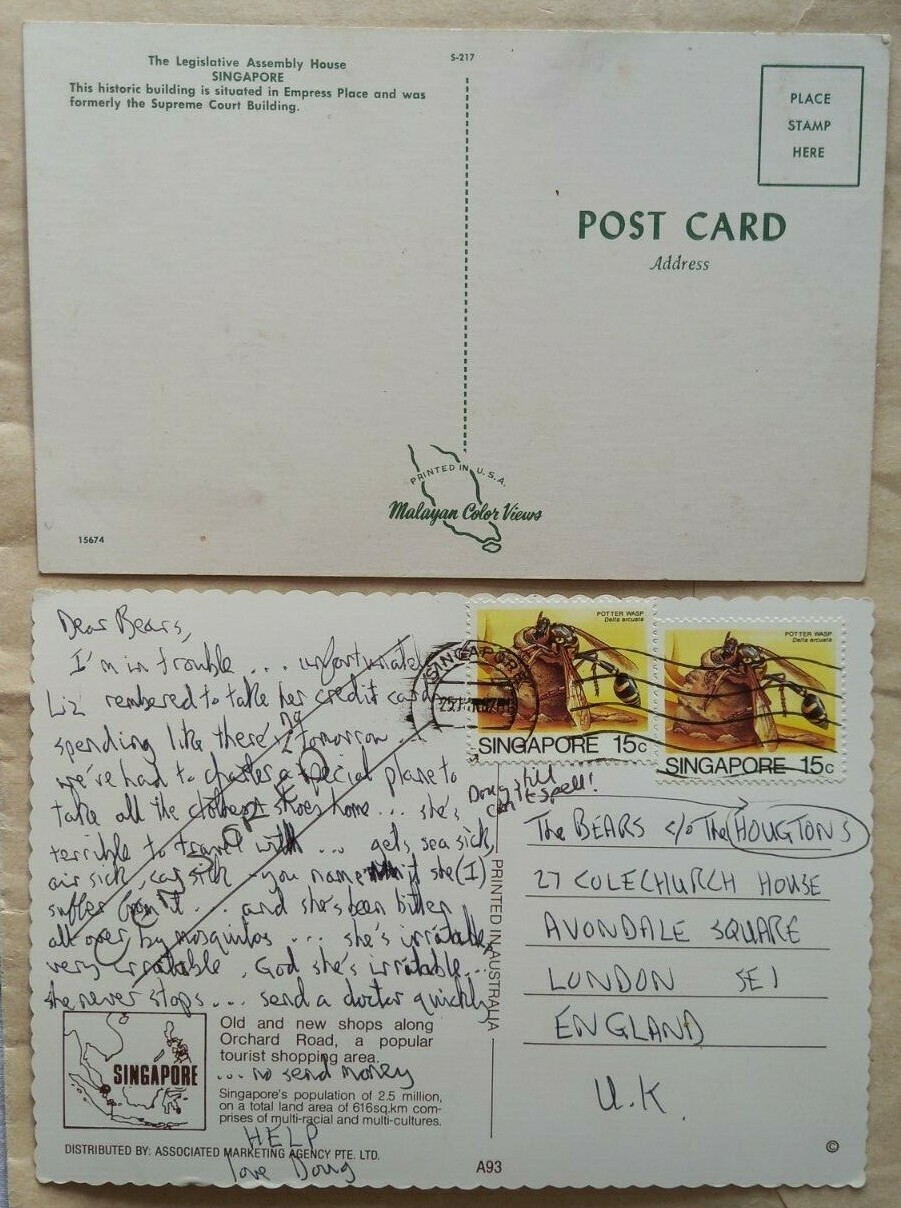 The Legislative Assembly House
SINGAPORE
This historic building is situated in Empress Place and was
formerly the Supreme Court Building.
S-217
PLACE
STAMP
HERE
POST CARD
Address
PRINTED IN U.S.A.
Malayan Color Views
15674
Dear Bears,
I'm in trouble ... unfortunately
Liz rembered to take her credit card
spending like there's no tomorrow
we've had to charter a special plane to
take all the clothes + shoes home ... she's
terrible to travel with ... gets sea sick,
air sick, car sick - you name it she (I)
suffer from it ... and she's been bitten
all over by mosquitos ... she's irratable,
very irratable. God she's irratable...
she never stops ... send a doctor quickly
... no send money
HELP
love Doug
SINGAPORE
Old and new shops along
Orchard Road, a popular
tourist shopping area.
Singapore's population of 2.5 million,
on a total land area of 616sq.km com-
prises of multi-racial and multi-cultures.
DISTRIBUTED BY: ASSOCIATED MARKETING AGENCY PTE. LTD.
A93
PRINTED IN AUSTRALIA
SINGAPORE
POTTER WASP
Delta arcuata
SINGAPORE 15c
POTTER WASP
Delta arcuata
SINGAPORE 15c
Doug still
can't spell!
The BEARS c/o The HOUGTONS
27 COLECHURCH HOUSE
AVONDALE SQUARE
LONDON SE1
ENGLAND
U.K.
©